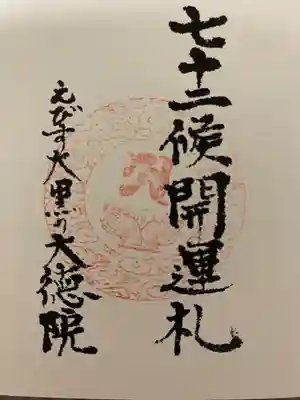 七十二候開運之札
えびす大黒の大徳院